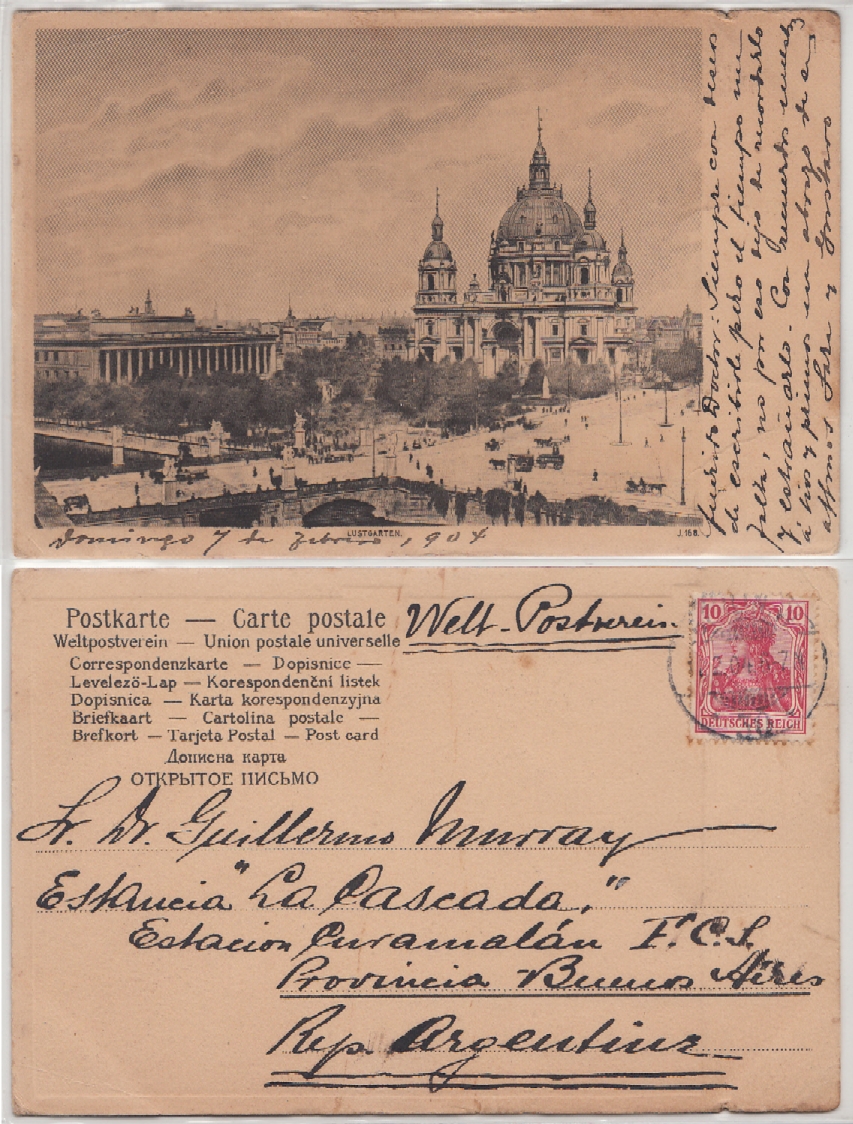 Querido Doctor: Siempre con deseos
de escribirle pero el tiempo me
falta, no por eso dejo de recordarlo
y estrañarlo - Con recuerdos nuestros
á tios y primos un abrazo de su
affmos Sara y Gustavo
Domingo 7 de Febrero, 904
LUSTGARTEN.
J. 168.
Postkarte — Carte postale
Weltpostverein — Union postale universelle
Correspondenzkarte — Dopisnice —
Levelező-Lap — Korespondenční listek
Dopisnica — Karta korespondenzyjna
Briefkaart — Cartolina postale —
Brefkort — Tarjeta Postal — Post card
Дописна карта
ОТКРЫТОЕ ПИСЬМО
Welt-Postverein.
10 10
DEUTSCHES REICH
Sr. Dr. Guillermo Murray
Estancia "La Cascada,"
Estacion Curamalán F.C.S.
Provincia Buenos Aires
Rep. Argentina